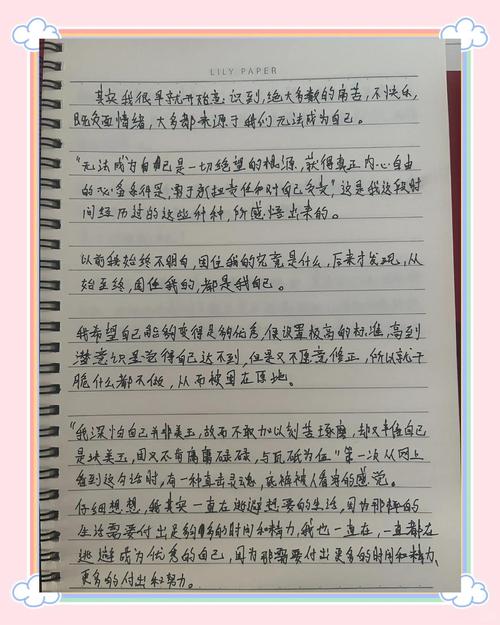 LILY PAPER
其实我很早就开始意识到,绝大多数的痛苦,不快乐,
以及负面情绪,大多都来源于我们无法成为自己。
“无法成为自己是一切绝望的根源,获得真正内心自由
的必备条件是,勇于承担责任和对自己负责”这是我这段时
间经历过的这些种种,所感悟出来的。
以前我始终不明白,困住我的究竟是什么,后来才发现,从
始至终,困住我的,都是我自己。
我希望自己能够变得足够优秀,便设置极高的标准,高到
潜意识里觉得自己达不到,但是又不愿意修正,所以就干
脆什么都不做,从而被困在原地。
“我深怕自己并非美玉,故而不敢加以刻苦琢磨,却又半信自己
是块美玉,固又不肯庸庸碌碌,与瓦砾为伍”第一次从网上
看到这句话时,有一种直击灵魂,底裤被人看穿的感觉。
仔细想想,我其实一直在逃避想要的生活,因为那样的
生活需要付出足够多的时间和精力,我也一直在,一直都在
逃避成为优秀的自己,因为那需要付出更多的时间和精力、
更多的付出和努力。